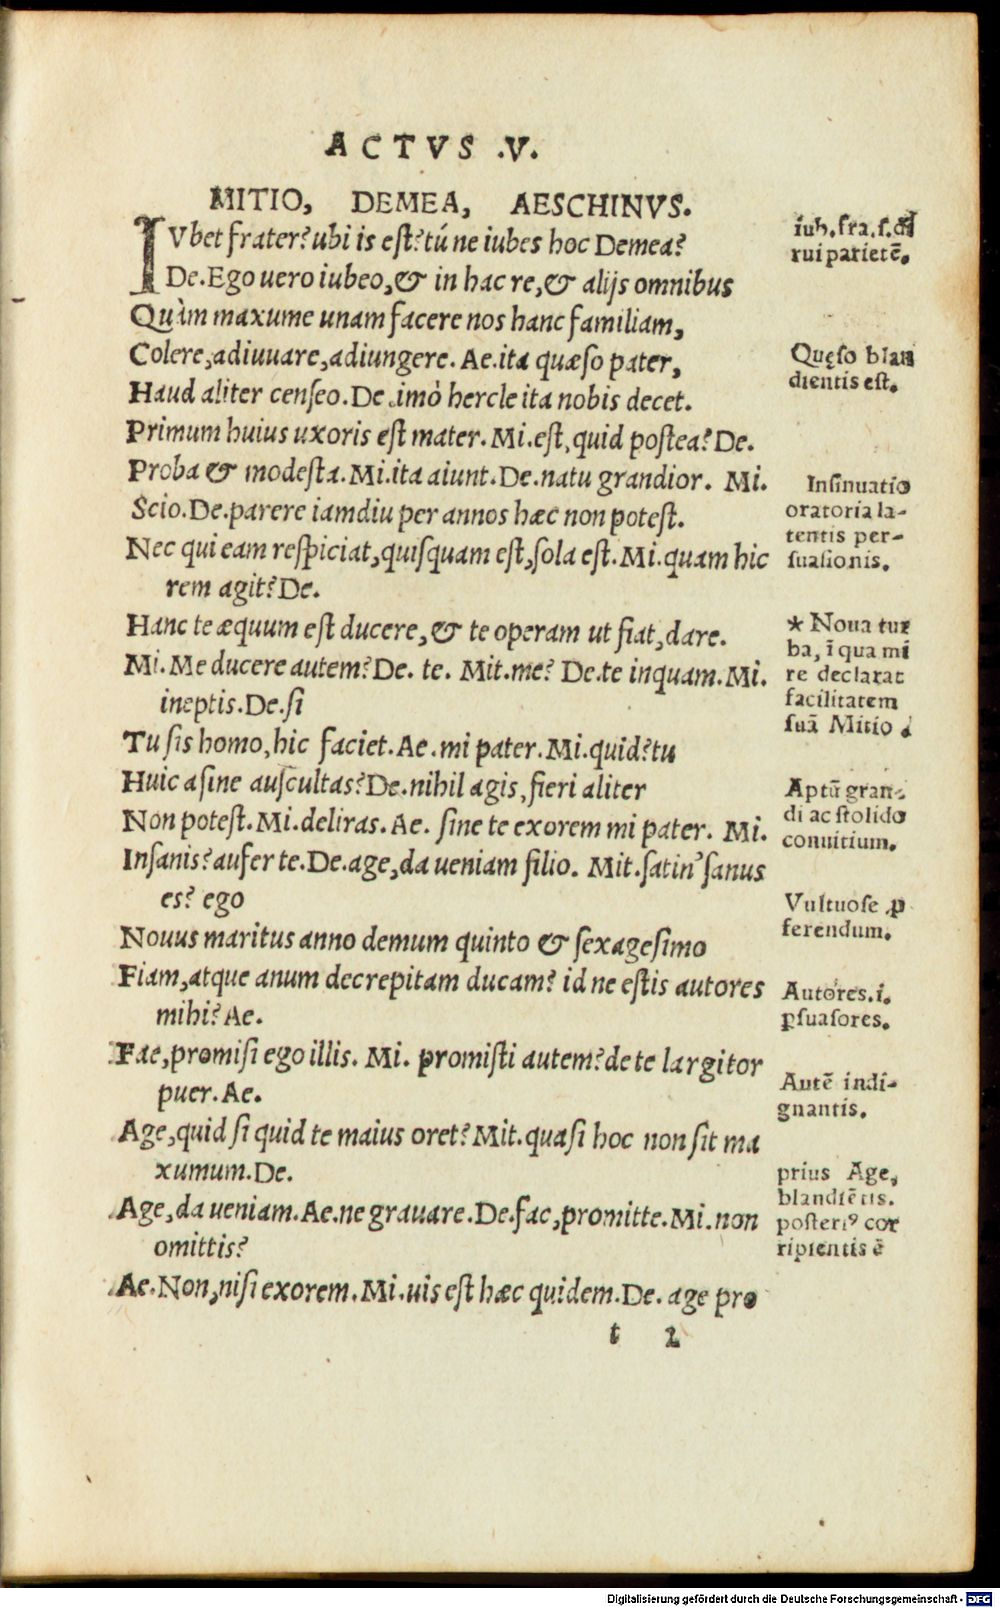 ACTVS .V.
MITIO, DEMEA, AESCHINVS.
IVbet frater? ubi is est? tú ne iubes hoc Demea?
De. Ego uero iubeo, & in hac re, & alijs omnibus
Quàm maxume unam facere nos hanc familiam,
Colere, adiuuare, adiungere. Ae. ita quæso pater,
Haud aliter censeo. De. imò hercle ita nobis decet.
Primum huius uxoris est mater. Mi. est, quid postea? De.
Proba & modesta. Mi. ita aiunt. De. natu grandior. Mi.
Scio. De. parere iamdiu per annos hæc non potest.
Nec qui eam respiciat, quisquam est, sola est. Mi. quam hic
rem agit? De.
Hanc te æquum est ducere, & te operam ut fiat, dare.
Mi. Me ducere autem? De. te. Mit. me? De. te inquam. Mi.
ineptis. De. si
Tu sis homo, hic faciet. Ae. mi pater. Mi. quid? tu
Huic asine auscultas? De. nihil agis, fieri aliter
Non potest. Mi. deliras. Ae. sine te exorem mi pater. Mi.
Insanis? aufer te. De. age, da ueniam filio. Mit. satin' sanus
es? ego
Nouus maritus anno demum quinto & sexagesimo
Fiam, atque anum decrepitam ducam? id ne estis autores
mihi? Ae.
Fac, promisi ego illis. Mi. promisti autem? de te largitor
puer. Ae.
Age, quid si quid te maius oret? Mit. quasi hoc non sit ma
xumum. De.
Age, da ueniam. Ae. ne grauare. De. fac, promitte. Mi. non
omittis?
Ae. Non, nisi exorem. Mi. uis est hæc quidem. De. age pro
t 2
iub. fra. s.
rui parietē.
Quęso blan
dientis est.
Insinuatio
oratoria la-
tentis per-
suasionis.
* Noua tur
ba, ī qua mi
re declarat
facilitatem
suā Mitio.
Aptū gran-
di ac stolido
conuitium.
Vultuose ꝓ
ferendum.
Autores. i.
ꝑsuasores.
Autē indi-
gnantis.
prius Age,
blandiētis.
posteriꝰ cor
ripientis ē
Digitalisierung gefördert durch die Deutsche Forschungsgemeinschaft - DFG